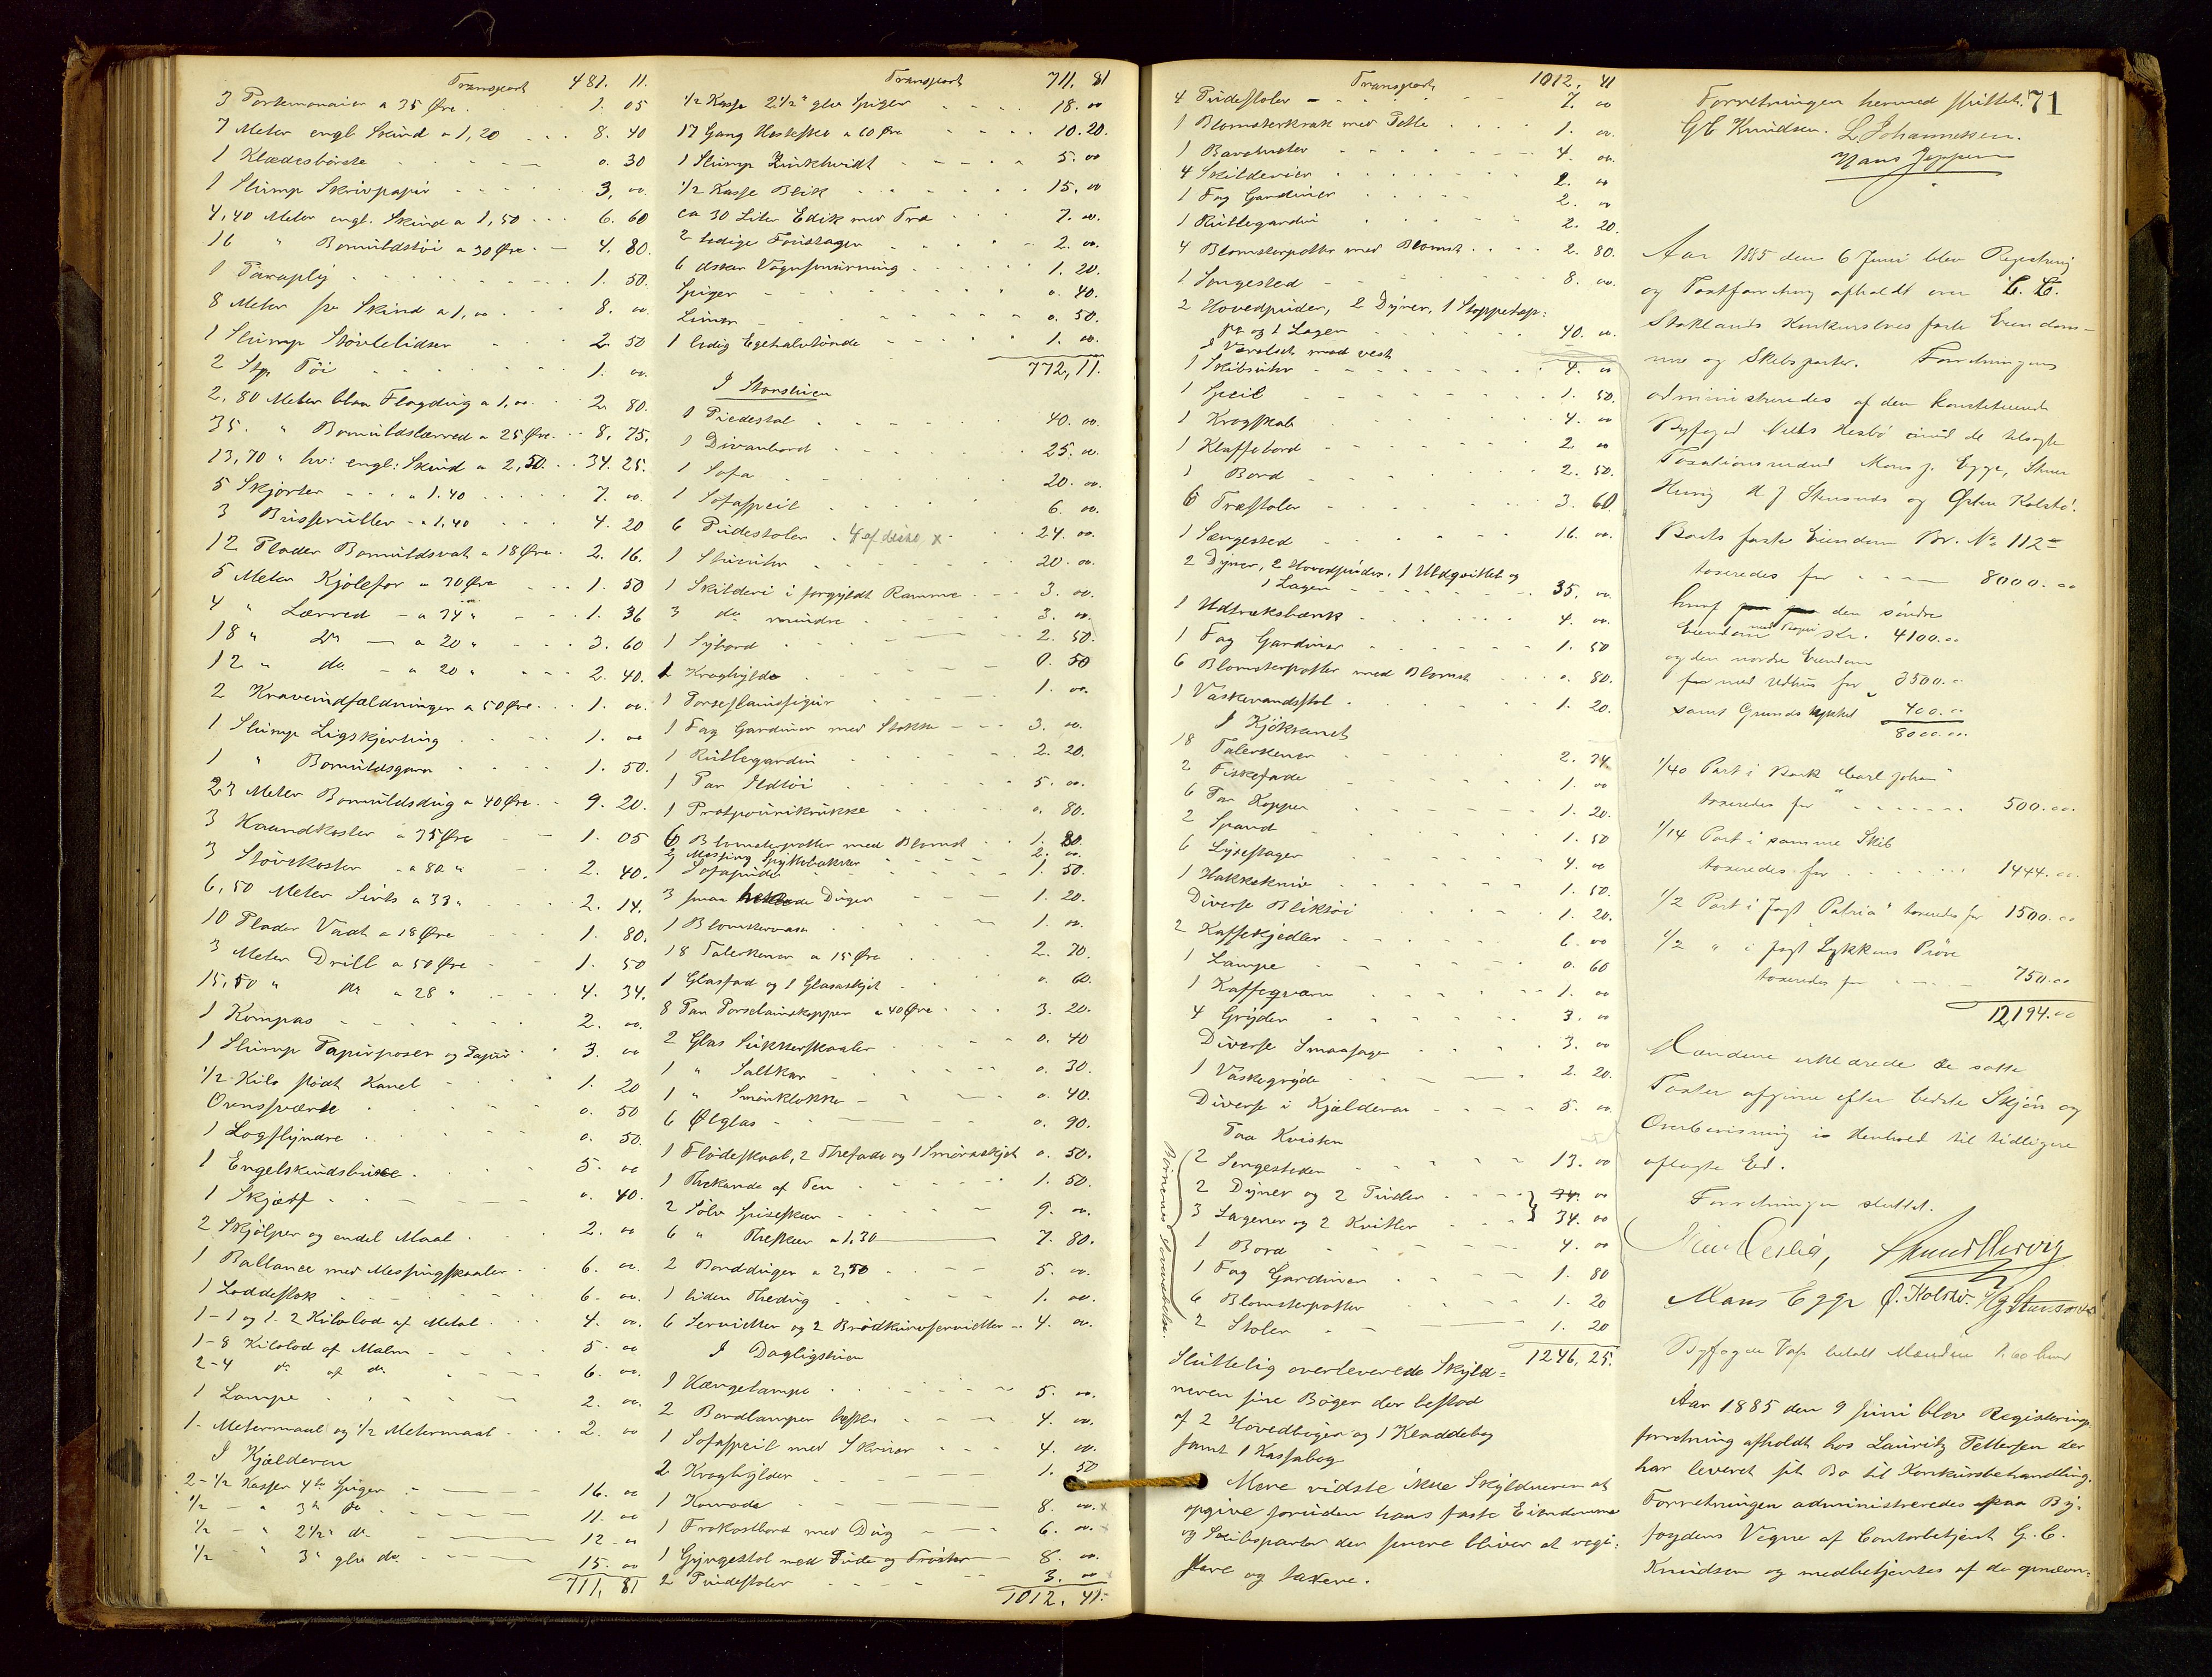 Transport 481. 11.
3 Portemonaier a 35 Øre. 1. 05
7 Meter engl. Skind a 1,20 8. 40
1 Klædesbörste 0. 30
1 Slump Skrivpapir 3. 00.
4,40 Meter engl. Skind a 1,50 6. 60
16 " Bomuldstöi a 30 Øre. 4. 80.
1 Paraply 1. 50.
8 Meter Skind a 1,00 8. 00
1 Slump Støvlelidser 2. 50
2 Stp. Töi 1. 00.
2,80 Meter blaa Flagdug a 1,00 2. 80.
35. " Bomuldslærred a 25 Øre. 8. 75.
13,70 " hv: engl: Skind a 2,50. 34. 25.
5 Skjorter a 1.40 7. 00.
3 Busseruller a 1,40 4. 20
12 Plader Bomuldsvat a 18 Øre. 2. 16.
5 Meter Kjolefor a 30 Øre 1. 50
4 " Lærred a 34 " 1. 36
18 " do a 20 " 3. 60
12 " do a 20 " 2. 40.
2 Kraveindfældninger a 50 Øre. 1. 00.
1 Slump Ligskjorting 1. 00
1 " Bomuldsgarn 1. 50.
23 Meter Bomuldsdug a 40 Øre. 9. 20.
3 Haandkoster a 35 Øre 1. 05
3 Støvekoster a 80 " 2. 40.
6,50 Meter Sirts a 33 " 2. 14.
10 Plader Vadt a 18 Øre 1. 80.
3 Meter Drill a 50 Øre 1. 50
15,50 " do a 28 " 4. 34.
1 Kompas 2. 00.
1 Slump Papirposer og Papir 3. 00
1/2 Kilo stødt Kanel 1. 20
Orensværte 0. 50
1 Logflyndre 0. 50.
1 Engelskindsbuxe. 5. 00
1 Skjærf 0. 40.
2 Skjölper og endel Maal 2. 00
1 Ballance med Messingskaaler 6. 00.
1 Loddestok 6. 00.
1-1 og 1. 2 Kilolod af Metal 4. 00.
1-8 Kilolod af Malm 5. 00
2-4 do af do 6. 00.
1 Lampe 2. 00.
1- Metermaal og 1/2 Metermaal 2. 00
I Kjælderen
2-1/2 Kasser 4" Spiger 16. 00
1/2 - " 3" do 11. 00
1/2 - " 2 1/2" do 12. 00
1/2 " 3" glv do 15. 00
711, 81
Transport 711. 81
1/2 Kasse 2 1/2" glv Spiger 18. 00
17 Gang Hestesko a 60 Øre 10. 20.
1 Slump Zinkhvidt 5. 00
1/2 Kasse Blik 15. 00
ca 30 Liter Edik med Træ 7. 00.
2 ledige Foustager 2. 00.
6 dsker Vognsmurning 1. 20.
Spiger 0. 40.
Limer 0. 50.
1 ledig Egehalvtönde 1. 00.
772, 11.
I Storstuen
1 Piedestal 40. 00.
1 Divanbord 25. 00.
1 Sofa 20. 00.
1 Sofaspeil 6. 00.
6 Pudestoler 4 af disse x 24. 00.
1 Stueuhr 20. 00.
1 Skilderi i forgyldt Ramme 3. 00.
3 do mindre 3. 00.
1 Sybord 2. 50.
1 Kroghylde 0. 50
1 Porselainsfigur 1. 00.
1 Fag Gardiner med Stokke 3. 00.
1 Rullegardin 2. 20.
1 Par Ildtöi 5. 00.
1 Potpourrikrukke 0. 80.
6 Blomsterpotter med Blomst 1. 80.
2 Messing Spyttebakker 2. 00.
1 Sofapude 1. 50.
3 smaa heklede Duger 1. 20.
1 Blomstervase 1. 00.
18 Talerkener a 15 Øre 2. 70.
1 Glasfad og 1 Glasaskjet 0. 60.
8 Par Porselainskopper a 40 Øre 3. 20.
2 Glas Sukkerskaaler 0. 40
1 " Saltkar 0. 30.
1 " Smørklokke 0. 40.
6 Ølglas 0. 90.
1 Flödeskaal, 2 Thefade og 1 Smöraskjet 0. 50.
1 Thekande af Ten 1. 50.
2 Sölv Spiseskeer 9. 00.
6 " Theskeer a 1,30 7. 80.
2 Borddüger a 2,50 5. 00.
1 liden Thedug 1. 00.
6 Servietter og 2 Brödkurvservietter 4. 00.
I Dagligstuen
1 Hængelampe 5. 00.
2 Bordlamper 4. 00.
1 Sofaspeil med Skuver 4. 00.
2 Kroghylder 1. 50
1 Komode 8. 00. x
1 Frokostbord med Dug 6. 00. x
1 Gyngestol med Pude og Trøster 8. 00.
2 Pudestoler 3. 00 x
1012. 41.
Transport 1012, 41
4 Pudestoler 7. 00
1 Blomsterkrak med Potte 1. 00.
1 Barometer 4. 00.
4 Skilderier 2. 00
1 Fag Gardiner 2. 00
1 Rullegardin 2. 20.
4 Blomsterpotter med Blomst 2. 80.
1 Sengested 8. 00.
2 Hovedpuder, 2 Dyner, 1 Stoppetæp:
pe og 1 Lagen 40. 00.
I Værelset mod vest
1 Skibsuhr 4. 00
1 Speil 1. 50.
1 Krogskab 4. 00
1 Klaffebord 2. 00
1 Bord 2. 50.
6 Træstoler 3. 60.
1 Sængested 16. 00.
2 Dyner, 2 Hovedpuder, 1 Uldqvittel og
1 Lagen 35. 00.
1 Udtræksbænk 4. 00.
1 Fag Gardiner 1. 50
6 Blomsterpotter med Blomst 0. 80.
1 Vaskevandsstol 1. 20.
I Kjökkenet
18 Talerkener 2. 34.
2 Fiskefade 1. 00
6 Par Kopper 1. 20.
2 Spand 1. 50
6 Lysestager 4. 00
1 Hakkekniv 1. 50.
Diverse Bliktöi 1. 20.
2 Kaffekjedler 6. 00
1 Lampe 0. 60
1 Kaffeqværn 1. 00
4 Gryder 3. 00
Diverse Smaasager 3. 00
1 Vaskegryde 2. 20.
Diverse i Kjælderen 5. 00.
Paa Kvisten
2 Sengesteder 13. 00
2 Dyner og 2 Puder 34. 00
3 Lagener og 2 Kvitler 34. 00
1 Bord 4. 00
1 Fag Gardiner 1. 80
6 Blomsterpotter 1. 20
2 Stoler 1. 20
1246, 25.
Børnenes
Sluttelig overleverede Skyld=
neren sine Böger der bestod
af 2 Hovedböger og 1 Kladdebog
samt 1 Kassabog
Mere vidste ikke Skyldneren at
opgive foruden hans faste Eiendomme
og Skibsparter der senere bliver at regi:
strere og taxere.
71
Forretningen hermed sluttet.
G C Knudsen. L. Johannessen.
Hans Jeppesen
Aar 1885 den 6 Juni blev Registrering
og Taxtforretning afholdt over C. C.
Stoklands Konkursboes faste Eiendom-
me og Skibsparter. Forretningen
administreredes af den konstituerede
Byfoged Niels Hesbö med de tilsagte
Taxationsmænd Mons J. Egge,
H J Stensnes og Østen Kolstö.
Boets faste Eiendom Br. No 112
taxeredes for 8000. 00
hvoraf den söndre
Eiendom med Kr. 4100.00
og den nordre Eiendom
med Udhus for 3500.00
samt Grundstykket 400.00
8000.00.
1/40 Part i Bark "Carl Johan"
taxeredes for 500.00.
1/14 Part i samme Skib
taxeredes for 1444.00.
1/2 Part i Jagt "Patria" taxeredes for 1500.00
1/2 " i Jagt Lykkens Pröve
taxeredes for 750.00
12,194.00
Mændene erklærede de satte
Taxter afgivne efter bedste Skjön og
Overbevisning i Henhold til tidligere
aflagte Eed.
Forretningen sluttet.
Mons Egge Ø. Kolstö. HJ Stensnes
Byfogden betalt Mændene 1.60 hver
Aar 1885 den 9 Juni blev Registerings
forretning afholdt hos Lauritz Pettersen der
har leveret sit Bo til Konkursbehandling.
Forretningen administreredes paa By:
fogdens Vegne af Contorbetjent G. C.
Knudsen og medbetjentes af de opnævn: